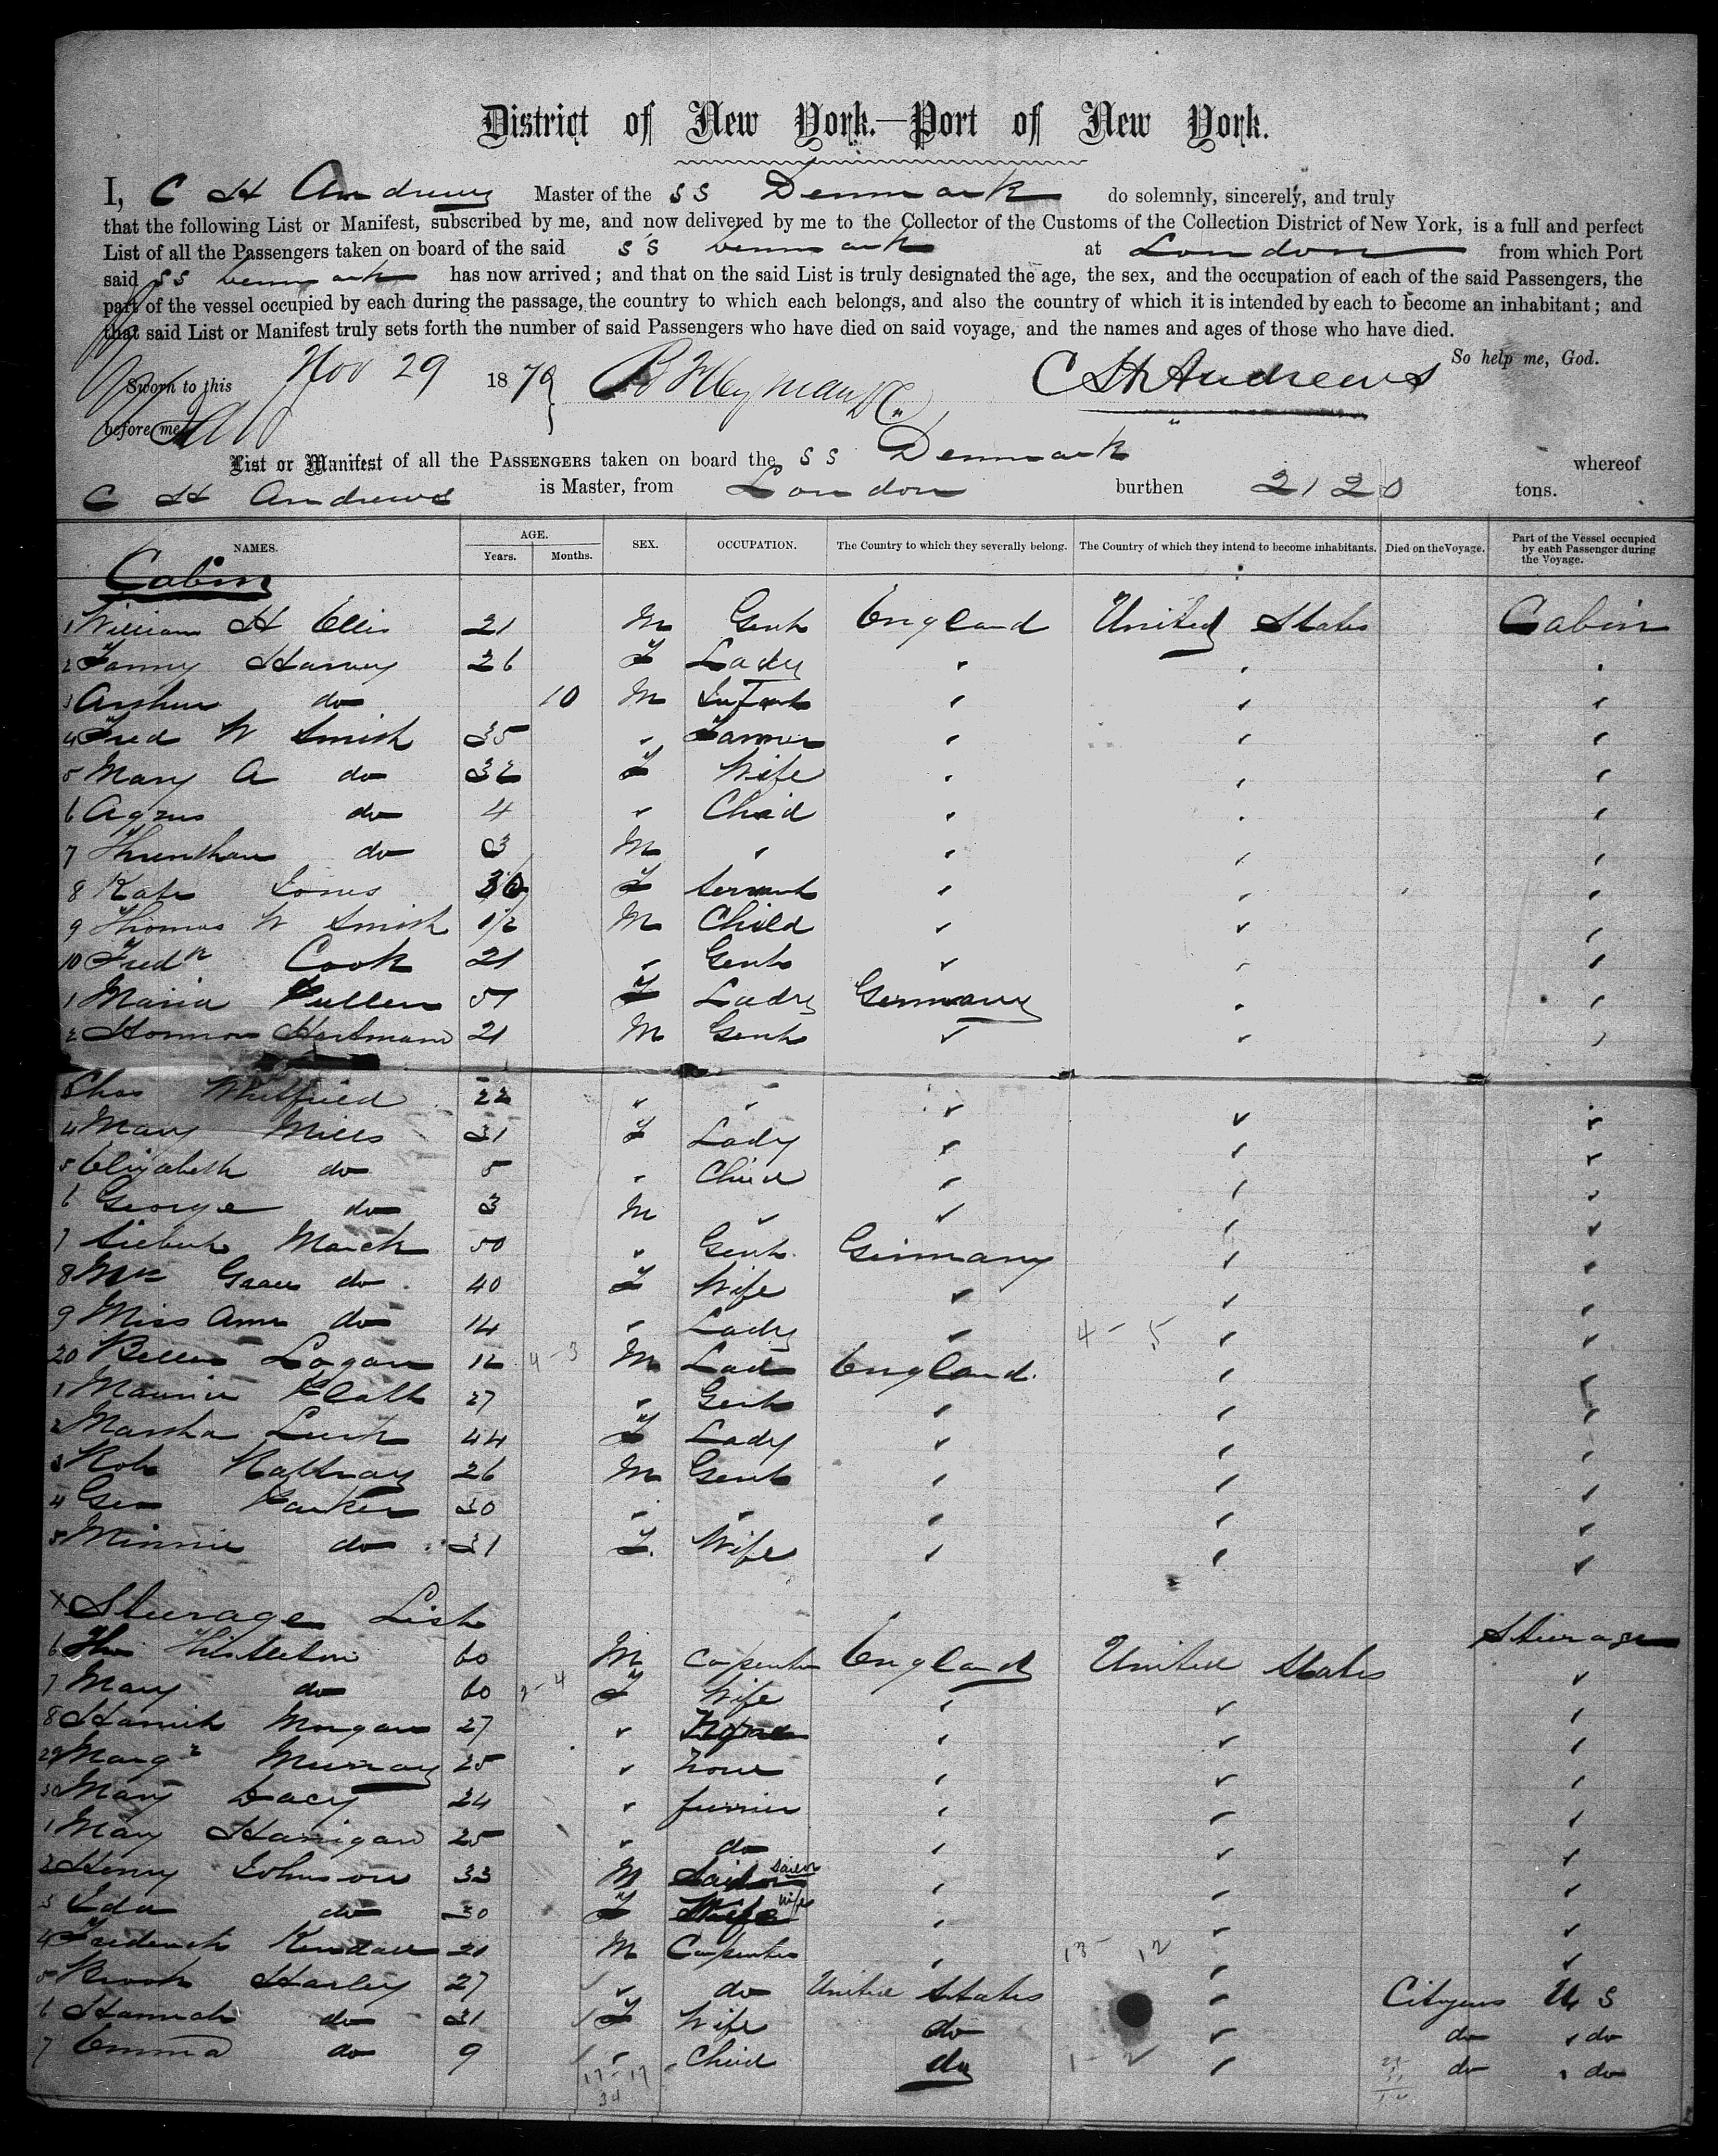 District of New York.—Port of New York.
I, C H Andrews Master of the SS Denmark do solemnly, sincerely, and truly
that the following List or Manifest, subscribed by me, and now delivered by me to the Collector of the Customs of the Collection District of New York, is a full and perfect
List of all the Passengers taken on board of the said SS Denmark at London from which Port
said SS Denmark has now arrived; and that on the said List is truly designated the age, the sex, and the occupation of each of the said Passengers, the
part of the vessel occupied by each during the passage, the country to which each belongs, and also the country of which it is intended by each to become an inhabitant; and
that said List or Manifest truly sets forth the number of said Passengers who have died on said voyage, and the names and ages of those who have died.
So help me, God.
Sworn to this Nov 29 1879 C H Andrews
before me
List or Manifest of all the PASSENGERS taken on board the SS Denmark whereof
C H Andrews is Master, from London burthen 2120 tons.
NAMES. AGE. Years. Months. SEX. OCCUPATION. The Country to which they severally belong. The Country of which they intend to become inhabitants. Died on the Voyage. Part of the Vessel occupied by each Passenger during the Voyage.
Cabin
1 William H Ellis 21 M Gent England United States Cabin
2 Fanny Harvey 26 F Lady " " "
3 Arthur do 10 M Infant " " "
4 Fred W Smith 35 " Farmer " " "
5 Mary A do 32 F Wife " " "
6 Agnes do 4 " Child " " "
7 do 3 M " " " "
8 Kate Jones 30 F Servant " " "
9 Thomas W Smith 1/2 M Child " " "
10 Fredk Cook 21 " Gent " " "
1 Maria Pullen 51 F Lady Germany " "
2 Hartmann 21 M Gent " " "
3 Chas Whitfield 22 " " " " "
4 Mary Mills 31 F Lady " " "
5 Elizabeth do 5 " Child " " "
6 George do 3 M " " " "
7 March 50 " Gent Germany " "
8 Mrs do 40 F Wife " " "
9 Miss Ann do 14 " Lady " 4-5 " "
20 Logan 12 4-3 M Lad England " "
1 Maurice Platt 27 " Gent " " "
2 Martha 44 F Lady " " "
3 Robt Rattray 26 M Gent " " "
4 Geo Parker 30 " " " " "
5 Minnie do 31 F Wife " " "
x Steerage List
6 Thos Thistleton 60 M Carpenter England United States Steerage
7 Mary do 60 F Wife " " "
8 Hannah Morgan 27 " " " "
29 Margt Murray 25 " None " " "
30 Mary Dacy 24 " furrier " " "
1 May Hanigan 25 " do " " "
2 Henry Johnson 33 M Sailor " " "
3 Eda do 30 F Wife " " "
4 Frederick Kendall 21 M Carpenter " 13-12 " "
5 Brook Harley 27 " do United States " Citizens U S
6 Hannah do 31 F Wife do " do " do
7 Emma do 9 " Child do 1-2 " do " do
17-17
34